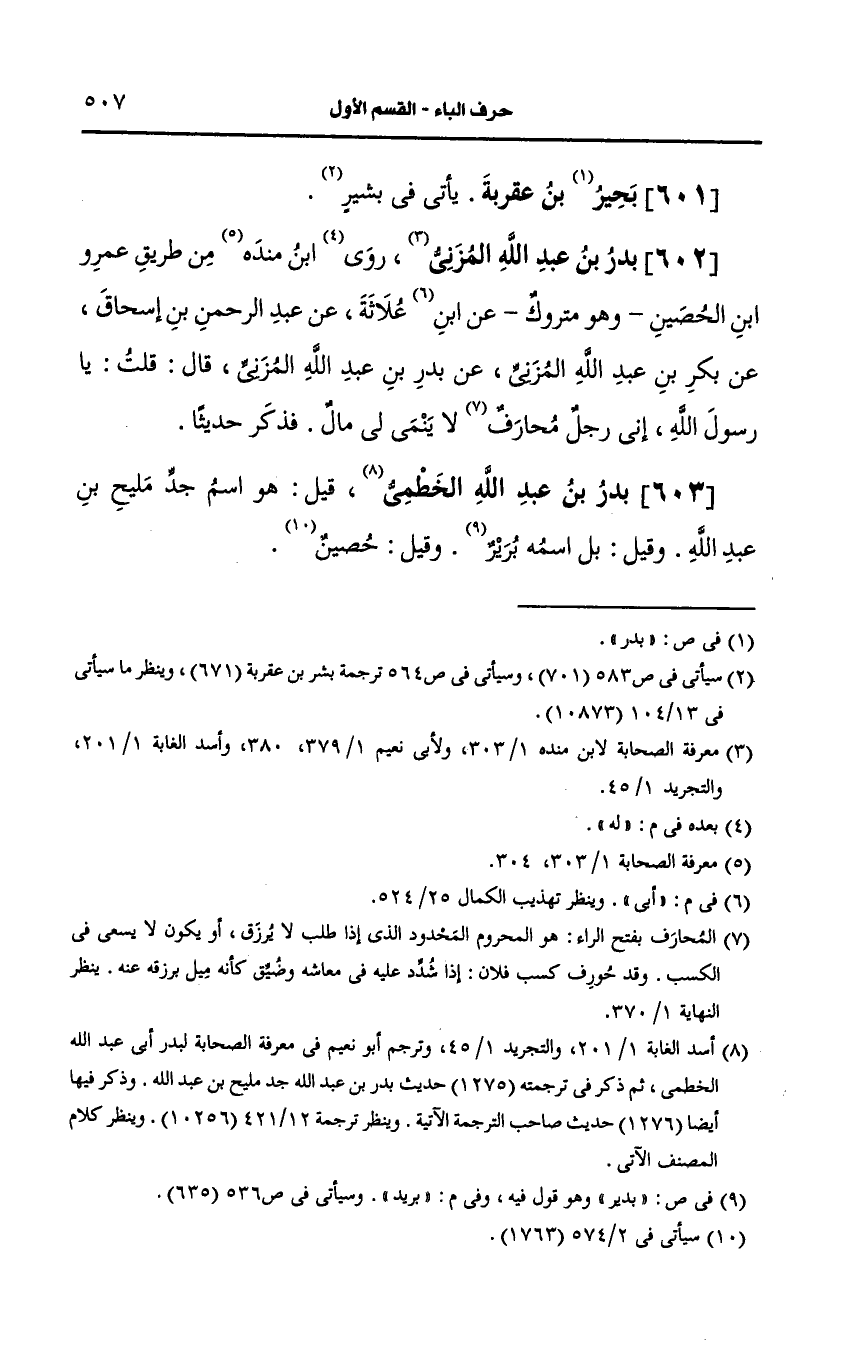 حرف الباء - القسم الأول
٥٠٧
[٦٠١] بَحِيرُ(١) بنُ عقربةَ . يأتى فى بشيرٍ(٢) .
[٦٠٢] بدرُ بنُ عبدِ اللَّهِ المُزَنِىُّ(٣) ، روَى(٤) ابنُ مندَه(٥) مِن طريقِ عمرِو
ابنِ الحُصَينِ – وهو متروكٌ – عن ابنِ(٦) عُلَاثَةَ ، عن عبدِ الرحمنِ بنِ إسحاقَ ،
عن بكرِ بنِ عبدِ اللَّهِ المُزَنِىِّ ، عن بدرِ بنِ عبدِ اللَّهِ المُزَنِىِّ ، قال : قلتُ : يا
رسولَ اللَّهِ ، إنى رجلٌ مُحارَفٌ(٧) لا يَنْمَى لى مالٌ . فذكَر حديثًا .
[٦٠٣] بدرُ بنُ عبدِ اللَّهِ الخَطْمِىُّ(٨) ، قيل : هو اسمُ جدِّ مَليحِ بنِ
عبدِ اللَّهِ . وقيل : بل اسمُه بُرَيْرٌ(٩) . وقيل : حُصينٌ(١٠) .
(١) فى ص : «بدر» .
(٢) سيأتى فى ص٥٨٣ (٧٠١) ، وسيأتى فى ص٥٦٤ ترجمة بشر بن عقربة (٦٧١) ، وينظر ما سيأتى
فى ١٠٤/١٣ (١٠٨٧٣) .
(٣) معرفة الصحابة لابن منده ١/ ٣٠٣، ولأبى نعيم ١/ ٣٧٩، ٣٨٠، وأسد الغابة ١/ ٢٠١،
والتجريد ١/ ٤٥.
(٤) بعده فى م : «له» .
(٥) معرفة الصحابة ١/ ٣٠٣، ٣٠٤.
(٦) فى م : «أبى» . وينظر تهذيب الكمال ٢٥/ ٥٢٤.
(٧) المُحارَف بفتح الراء : هو المحروم المَحْدود الذى إذا طلب لا يُرزَق ، أو يكون لا يسعى فى
الكسب . وقد حُورِف كسب فلان : إذا شُدِّد عليه فى معاشه وضُيِّق كأنه مِيل برزقه عنه . ينظر
النهاية ١/ ٣٧٠.
(٨) أسد الغابة ١/ ٢٠١، والتجريد ١/ ٤٥، وترجم أبو نعيم فى معرفة الصحابة لبدر أبى عبد الله
الخطمى ، ثم ذكر فى ترجمته (١٢٧٥) حديث بدر بن عبد الله جد مليح بن عبد الله . وذكر فيها
أيضا (١٢٧٦) حديث صاحب الترجمة الآتية . وينظر ترجمة ٤٢١/١٢ (١٠٢٥٦) . وينظر كلام
المصنف الآتى .
(٩) فى ص : «بدير» وهو قول فيه ، وفى م : «بريد» . وسيأتى فى ص٥٣٦ (٦٣٥) .
(١٠) سيأتى فى ٥٧٤/٢ (١٧٦٣) .